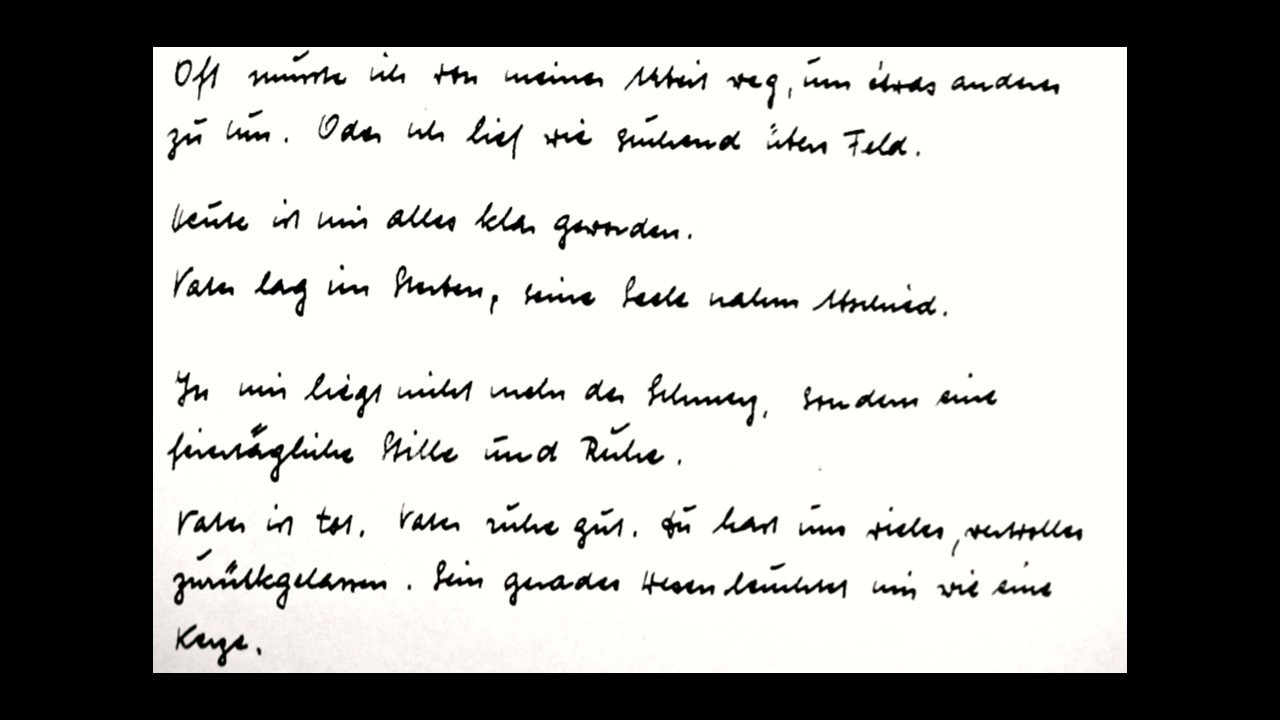 Oft musste ich von meiner Arbeit weg, um etwas anderes
zu tun. Oder ich lief wie suchend übers Feld.
Heute ist mir alles klar geworden.
Vater lag im Sterben, seine Seele nahm Abschied.
In mir liegt nicht mehr der Schmerz, sondern eine
feiertägliche Stille und Ruhe.
Vater ist tot. Vater ruhe gut. Du hast uns vieles, wertvolles
zurückgelassen. Sein gerades Wesen leuchtet mir wie eine
Kerze.